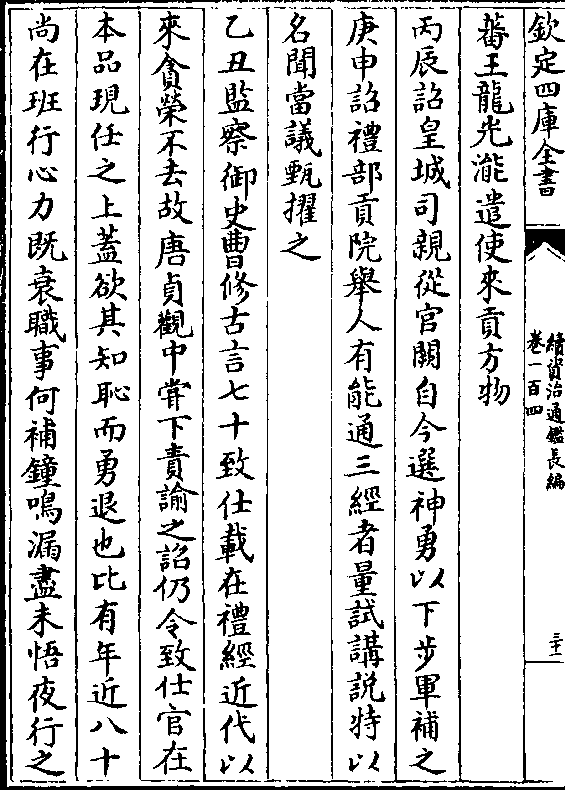 欽定四庫全書
續資治通鑑長編
卷一百四
三十一
蕃王龍光漇遣使來貢方物
丙辰詔皇城司親從官闕自今選神勇以下步軍補之
庚申詔禮部貢院舉人有能通三經者量試講説特以
名聞當議甄擢之
乙丑監察御史曹修古言七十致仕載在禮經近代以
來貪榮不去故唐貞觀中甞下責諭之詔仍令致仕官在
本品現任之上蓋欲其知恥而勇退也比有年近八十
尚在班行心力既衰職事何補鐘鳴漏盡未悟夜行之